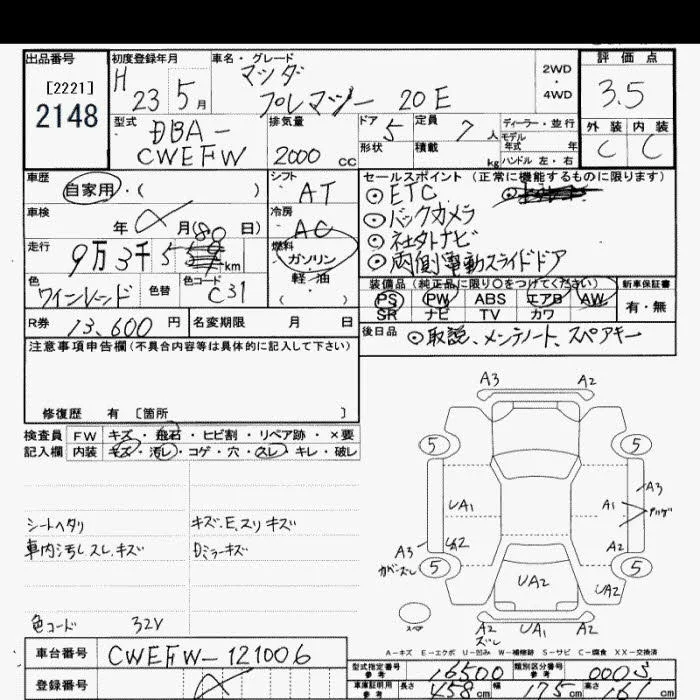 出品番号
[2221]
2148
初度登録年月
H 23 5月
車名・グレード
マツダ
プレマシー 20E
2WD
・
4WD
評価点
3.5
外装 内装
C C
型式
DBA-
CWEFW
排気量
2000 cc
ドア 5
形状
定員 7人
積載 kg
ディーラー・並行
モデル
年式 年
ハンドル 左・右
車歴
自家用・( )
シフト
AT
車検
年 月(日)
冷房
AC
走行
9万3千 km
燃料
ガソリン
・
軽・油
( )
色
ワインレッド
色替
色コード
C31
R券 13,600円
名変期限 月 日
セールスポイント(正常に機能するものに限ります)
◎ETC
◎バックカメラ
◎社外ナビ
◎両側電動スライドドア
装備品(純正品に限り○をつけてください)
PS PW ABS エアB AW
SR ナビ TV カワ
新車保証書
有・無
後日品 ◎取説、メンテノート、スペアキー
注意事項申告欄(不具合内容等は具体的に記入して下さい)
修復歴 有 〔箇所 〕
検査員 FW キズ・飛石・ヒビ割・リペア跡・×要
記入欄 内装 キズ・汚レ・コゲ・穴・スレ・キレ・破レ
シートヘタリ
キズ.E.スリキズ
車内汚し.スレ.キズ
Dミラーキズ
色コード 32V
A3 A2
5 5
UA1 A1 A3
A3 A2
5 5
UA2 UA2
スペア
A2 UA1 A2
ズレ
A-キズ E-エクボ U-凹み W-補修跡 S-サビ C-腐食 XX-交換済
車台番号 CWEFW-121006
登録番号
型式指定番号 参考 16500
類別区分番号 参考 0003
車庫証明用 参考 長さ 458cm 幅 175cm 高さ 161cm